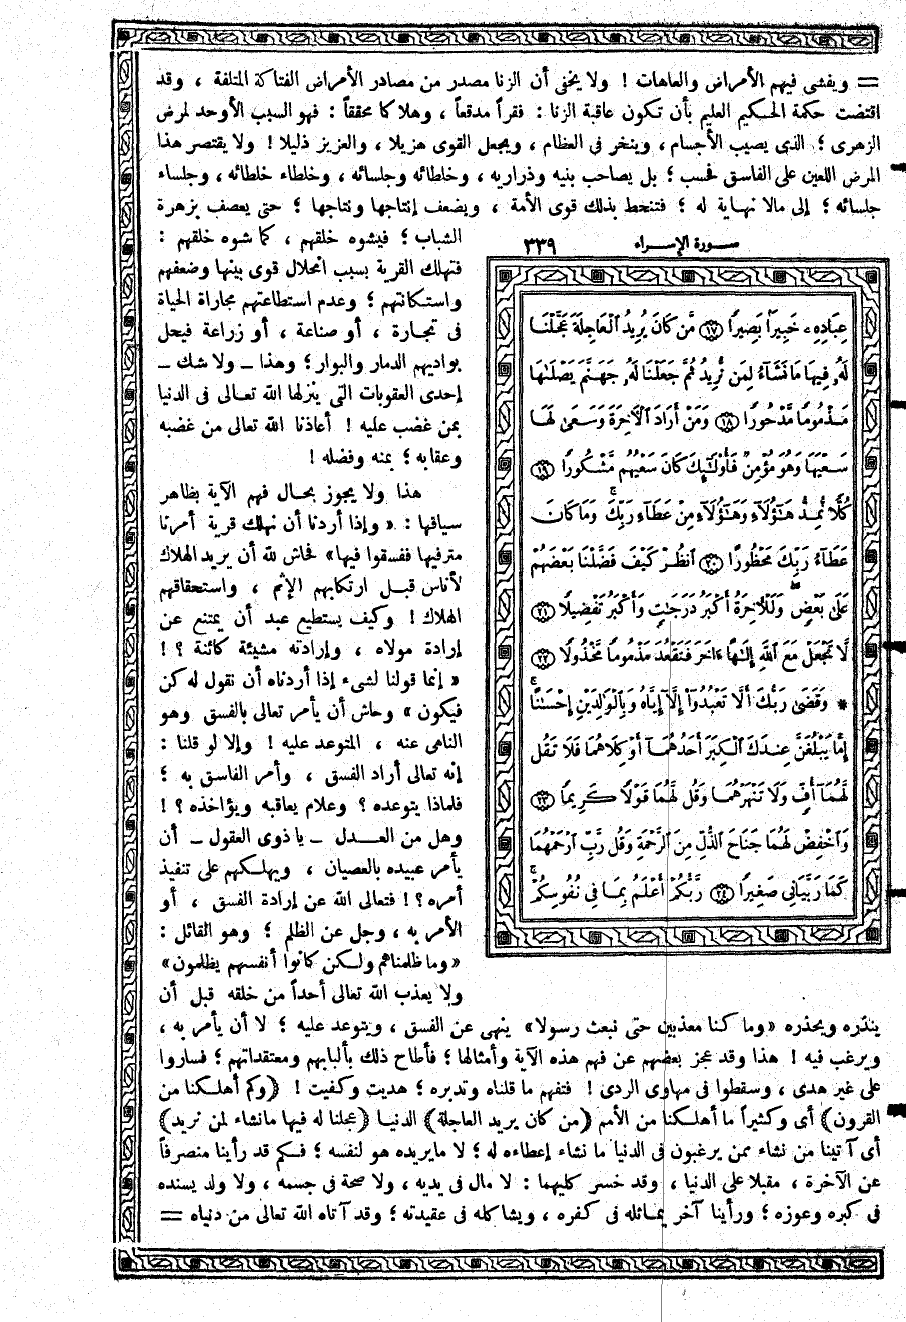 = ويفشى فيهم الأمراض والعاهات ! ولا يخفى أن الزنا مصدر من مصادر الأمراض الفتاكة المتلفة ، وقد
اقتضت حكمة الحكيم العليم بأن تكون عاقبة الزنا : فقراً مدقعاً ، وهلاكا محققاً : فهو السبب الأوحد لمرض
الزهرى ؛ الذى يصيب الأجسام ، وينخر فى العظام ، ويجعل القوى هزيلا ، والعزيز ذليلا ! ولا يقتصر هذا
المرض اللعين على الفاسق فحسب ؛ بل يصاحب بنيه وذراريه ، وخلطائه وجلسائه ، وخلطاء خلطائه ، وجلساء
جلسائه ؛ إلى مالا نهاية له ؛ فتنحط بذلك قوى الأمة ، ويضعف إنتاجها ونتاجها ؛ حتى يعصف بزهرة
الشباب ؛ فيشوه خلقهم ، كما شوه خلقهم :
فتهلك القرية بسبب انحلال قوى بنيها وضعفهم
واستكانتهم ؛ وعدم استطاعتهم مجاراة الحياة
فى تجارة ، أو صناعة ، أو زراعة فيحل
بواديهم الدمار والبوار ؛ وهذا ـ ولا شك ـ
إحدى العقوبات التى ينزلها الله تعالى فى الدنيا
بمن غضب عليه ! أعاذنا الله تعالى من غضبه
وعقابه ؛ بمنه وفضله !
هذا ولا يجوز بحال فهم الآية بظاهر
سياقها : « وإذا أردنا أن نهلك قرية أمرنا
مترفيها ففسقوا فيها» فحاش لله أن يريد الهلاك
لأناس قبل ارتكابهم الإثم ، واستحقاقهم
الهلاك ! وكيف يستطيع عبد أن يمتنع عن
إرادة مولاه ، وإرادته مشيئة كائنة ؟ !
« إنما قولنا لشىء إذا أردناه أن نقول له كن
فيكون » وحاش أن يأمر تعالى بالفسق وهو
الناهى عنه ، المتوعد عليه ! وإلا لو قلنا :
إنه تعالى أراد الفسق ، وأمر الفاسق به ؛
فلماذا يتوعده ؟ وعلام يعاقبه ويؤاخذه ؟ !
وهل من العدل ـ يا ذوى العقول ـ أن
يأمر عبيده بالعصيان ، ويهلكهم على تنفيذ
أمره ؟ ! فتعالى الله عن إرادة الفسق ، أو
الأمر به ، وجل عن الظلم ؛ وهو القائل :
«وما ظلمناهم ولكن كانوا أنفسهم يظلمون»
ولا يعذب الله تعالى أحداً من خلقه قبل أن
سورة الإسراء ٣٣٩
عِبَادِهِۦ خَبِيرًۢا بَصِيرًا ﴿١٧﴾ مَّن كَانَ يُرِيدُ ٱلْعَاجِلَةَ عَجَّلْنَا
لَهُۥ فِيهَا مَا نَشَآءُ لِمَن نُّرِيدُ ثُمَّ جَعَلْنَا لَهُۥ جَهَنَّمَ يَصْلَىٰهَا
مَذْمُومًا مَّدْحُورًا ﴿١٨﴾ وَمَنْ أَرَادَ ٱلْءَاخِرَةَ وَسَعَىٰ لَهَا
سَعْيَهَا وَهُوَ مُؤْمِنٌ فَأُو۟لَٰٓئِكَ كَانَ سَعْيُهُم مَّشْكُورًا ﴿١٩﴾
كُلًّا نُّمِدُّ هَٰٓؤُلَآءِ وَهَٰٓؤُلَآءِ مِنْ عَطَآءِ رَبِّكَ ۚ وَمَا كَانَ
عَطَآءُ رَبِّكَ مَحْظُورًا ﴿٢٠﴾ ٱنظُرْ كَيْفَ فَضَّلْنَا بَعْضَهُمْ
عَلَىٰ بَعْضٍ ۚ وَلَلْءَاخِرَةُ أَكْبَرُ دَرَجَٰتٍ وَأَكْبَرُ تَفْضِيلًا ﴿٢١﴾
لَّا تَجْعَلْ مَعَ ٱللَّهِ إِلَٰهًا ءَاخَرَ فَتَقْعُدَ مَذْمُومًا مَّخْذُولًا ﴿٢٢﴾
* وَقَضَىٰ رَبُّكَ أَلَّا تَعْبُدُوٓا۟ إِلَّآ إِيَّاهُ وَبِٱلْوَٰلِدَيْنِ إِحْسَٰنًا ۚ
إِمَّا يَبْلُغَنَّ عِندَكَ ٱلْكِبَرَ أَحَدُهُمَآ أَوْ كِلَاهُمَا فَلَا تَقُل
لَّهُمَآ أُفٍّ وَلَا تَنْهَرْهُمَا وَقُل لَّهُمَا قَوْلًا كَرِيمًا ﴿٢٣﴾
وَٱخْفِضْ لَهُمَا جَنَاحَ ٱلذُّلِّ مِنَ ٱلرَّحْمَةِ وَقُل رَّبِّ ٱرْحَمْهُمَا
كَمَا رَبَّيَانِى صَغِيرًا ﴿٢٤﴾ رَّبُّكُمْ أَعْلَمُ بِمَا فِى نُفُوسِكُمْ ۚ
ينذره ويحذره «وما كنا معذبين حتى نبعث رسولا» ينهى عن الفسق ، ويتوعد عليه ؛ لا أن يأمر به ،
ويرغب فيه ! هذا وقد عجز بعضهم عن فهم هذه الآية وأمثالها ؛ فأطاح ذلك بألبابهم ومعتقداتهم ؛ فساروا
على غير هدى ، وسقطوا فى مهاوى الردى ! فتفهم ما قلناه وتدبره ؛ هديت وكفيت ! (وكم أهلكنا من
القرون) أى وكثيراً ما أهلكنا من الأمم (من كان يريد العاجلة) الدنيا (عجلنا له فيها مانشاء لمن نريد)
أى آتينا من نشاء ممن يرغبون فى الدنيا ما نشاء إعطاءه له ؛ لا مايريده هو لنفسه ؛ فكم قد رأينا منصرفاً
عن الآخرة ، مقبلا على الدنيا ، وقد خسر كليهما : لا مال فى يديه ، ولا صحة فى جسمه ، ولا ولد يسنده
فى كبره وعوزه ؛ ورأينا آخر يماثله فى كفره ، ويشاكله فى عقيدته ؛ وقد آتاه الله تعالى من دنياه =